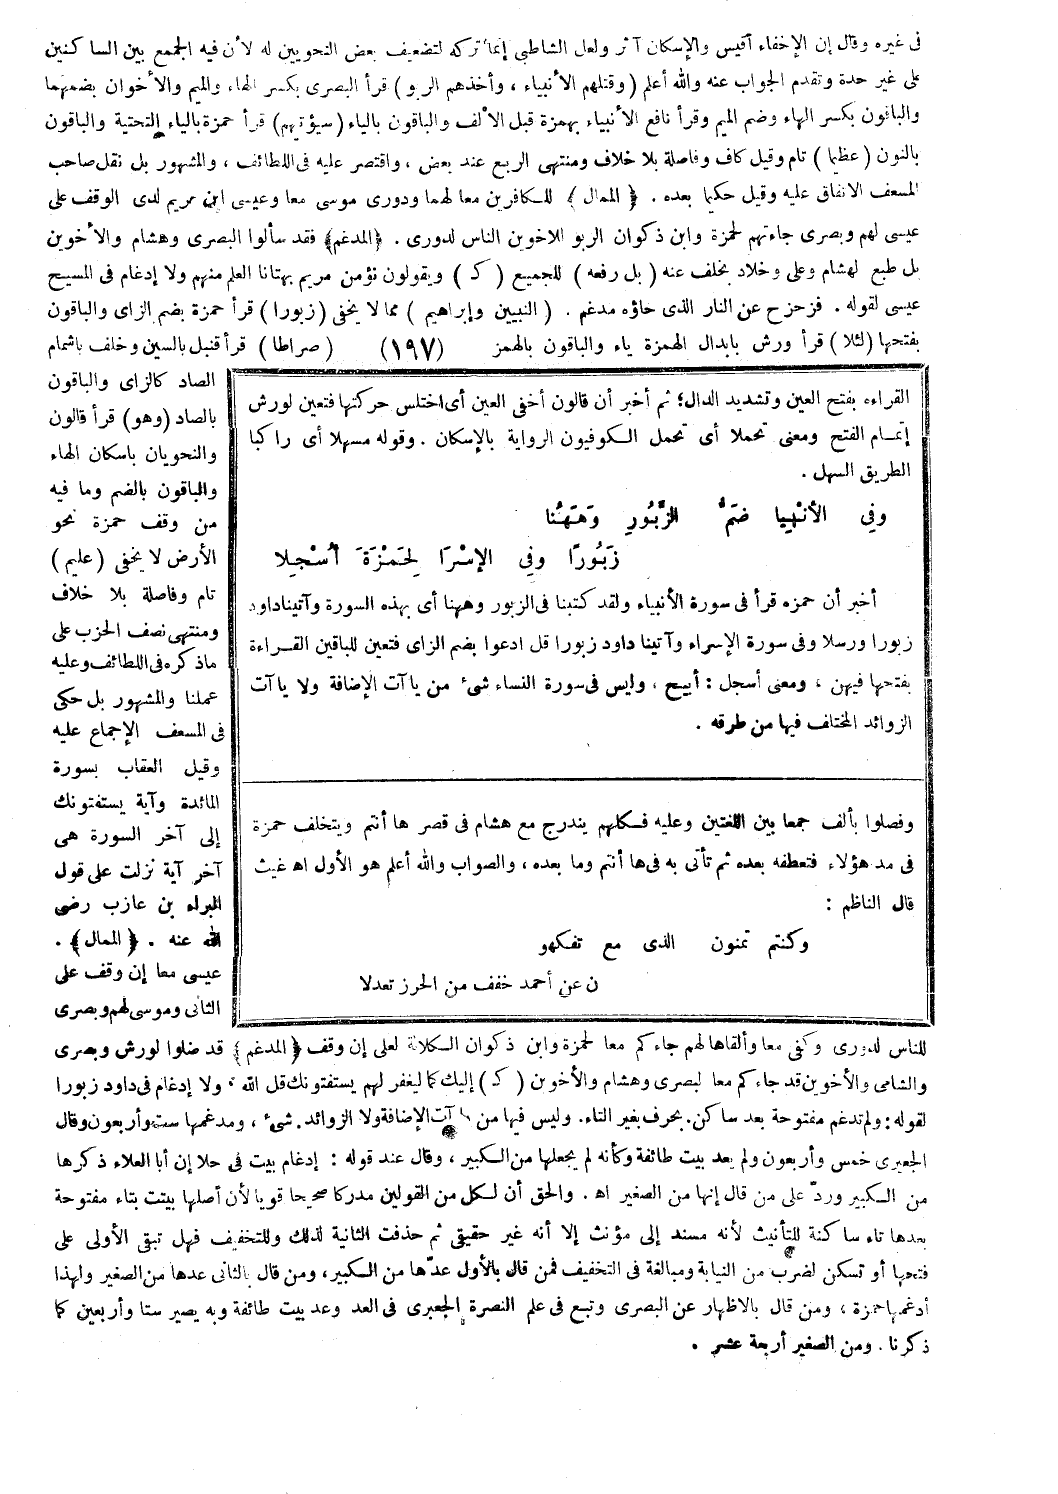 فى غيره وقال إن الإخفاء أقيس والإسكان آثر ولعل الشاطبي إنما تركه لتضعيف بعض النحويين له لأن فيه الجمع بين الساكنين
على غير حدة وتقدم الجواب عنه والله أعلم (وقتلهم الأنبياء ، وأخذهم الربو) قرأ البصرى بكسر الهاء والميم والأخوان بضمهما
والباقون بكسر الهاء وضم الميم وقرأ نافع الأنبياء بهمزة قبل الألف والباقون بالياء (سيؤتيهم) قرأ حمزة بالياء التحتية والباقون
بالنون (عظيما) تام وقيل كاف وفاصلة بلا خلاف ومنتهى الربع عند بعض ، واقتصر عليه فى اللطائف ، والمشهور بل نقل صاحب
المسعف الاتفاق عليه وقيل حكيما بعده . ﴿ الممال ﴾ للكافرين معا لهما ودورى موسى معا وعيسى ابن مريم لدى الوقف على
عيسى لهم وبصرى جاءتهم لحمزة وابن ذكوان الربو للأخوين الناس لدورى . ﴿المدغم﴾ فقد سألوا البصرى وهشام والأخوين
بل طبع لهشام وعلى وخلاد بخلف عنه (بل رفعه) للجميع (ك) ويقولون نؤمن مريم بهتانا العلم منهم ولا إدغام فى المسيح
عيسى لقوله . فزحزح عن النار الذى حاؤه مدغم . (النبيين وإبراهيم) مما لا يخفى (زبورا) قرأ حمزة بضم الزاى والباقون
بفتحها (لئلا) قرأ ورش بابدال الهمزة ياء والباقون بالهمز (١٩٧) (صراطا) قرأ قنبل بالسين وخلف باشمام
الصاد كالزاى والباقون
بالصاد (وهو) قرأ قالون
والنحويان باسكان الهاء
والباقون بالضم وما فيه
من وقف حمزة نحو
الأرض لا يخفى (عليم)
تام وفاصلة بلا خلاف
ومنتهى نصف الحزب على
ماذكره فى اللطائف وعليه
عملنا والمشهور بل حكى
فى المسعف الإجماع عليه
وقيل العقاب بسورة
المائدة وآية يستفتونك
إلى آخر السورة هى
آخر آية نزلت على قول
البراء بن عازب رضى
الله عنه . ﴿الممال﴾ .
عيسى معا إن وقف على
الثانى وموسى لهم وبصرى
القراءه بفتح العين وتشديد الدال؛ ثم أخبر أن قالون أخفى العين أى اختلس حركتها فتعين لورش
إتمام الفتح ومعنى تحملا أى تحمل الكوفيون الرواية بالإسكان . وقوله مسهلا أى راكبا
الطريق السهل .
وَفِي الأنْبِيا ضَمُّ الزَّبُورِ وَهَهُنا
زَبُورًا وَفِي الإسْرَا لِحَمْزَةَ أُسْجِلا
أخبر أن حمزه قرأ فى سورة الأنبياء ولقد كتبنا فى الزبور وههنا أى بهذه السورة وآتينا داود
زبورا ورسلا وفى سورة الإسراء وآتينا داود زبورا قل ادعوا بضم الزاى فتعين للباقين القراءة
بفتحها فيهن ، ومعنى أسجل : أبيح ، وليس فى سورة النساء شىء من ياآت الإضافة ولا ياآت
الزوائد المختلف فيها من طرقه .
وفصلوا بألف جمعا بين اللغتين وعليه فكلهم يندرج مع هشام فى قصر ها أنتم ويتخلف حمزة
فى مد هؤلاء فتعطفه بعده ثم تأتى به فى ها أنتم وما بعده ، والصواب والله أعلم هو الأول اه غيث
قال الناظم :
وكنتم تمنون الذى مع تفكهو
ن عن أحمد خفف من الحرز تعدلا
للناس لدورى وكفى معا وألقاها لهم جاءكم معا لحمزة وابن ذكوان الكلالة لعلى إن وقف ﴿المدغم﴾ قد ضلوا لورش وبصرى
والشامى والأخوين قد جاءكم معا لبصرى وهشام والأخوين (ك) إليك كما ليغفر لهم يستفتونك قل الله ، ولا إدغام فى داود زبورا
لقوله : ولم تدغم مفتوحة بعد ساكن . بحرف بغير التاء . وليس فيها من ياآت الإضافة ولا الزوائد . شىء ، ومدغمها ست وأربعون وقال
الجعبرى خمس وأربعون ولم يعد بيت طائفة وكأنه لم يجعلها من الكبير ، وقال عند قوله : إدغام بيت فى حلا إن أبا العلاء ذكرها
من الكبير وردّ على من قال إنها من الصغير اه . والحق أن لكل من القولين مدركا صحيحا قويا لأن أصلها بيتت بتاء مفتوحة
بعدها تاء ساكنة للتأنيث لأنه مسند إلى مؤنث إلا أنه غير حقيقى ثم حذفت الثانية لذلك وللتخفيف فهل تبقى الأولى على
فتحها أو تسكن لضرب من النيابة ومبالغة فى التخفيف فمن قال بالأول عدّها من الكبير ، ومن قال بالثانى عدها من الصغير ولهذا
أدغمها حمزة ، ومن قال بالاظهار عن البصرى وتبع فى علم النصرة الجعبرى فى العد وعد بيت طائفة وبه يصير ستا وأربعين كما
ذكرنا . ومن الصغير أربعة عشر .